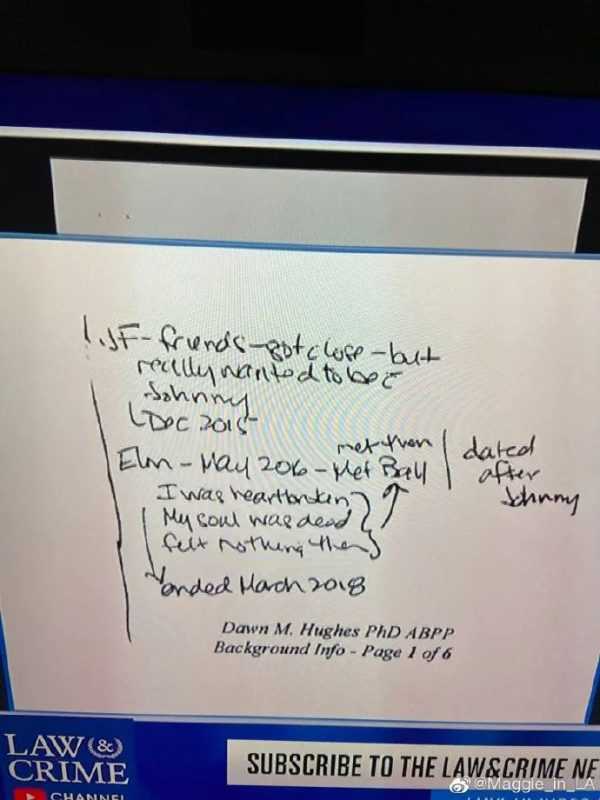 1. JF - friends - got close - but
really wanted to be c̄
Johnny
Dec 2015
Elon - May 2016 - Met Ball
met then
dated
after
Johnny
I was heartbroken
My soul was dead
felt nothing then
ended March 2018
Dawn M. Hughes PhD ABPP
Background Info - Page 1 of 6
LAW &
CRIME
CHANNEL
SUBSCRIBE TO THE LAW&CRIME NE
@Maggie_in_LA